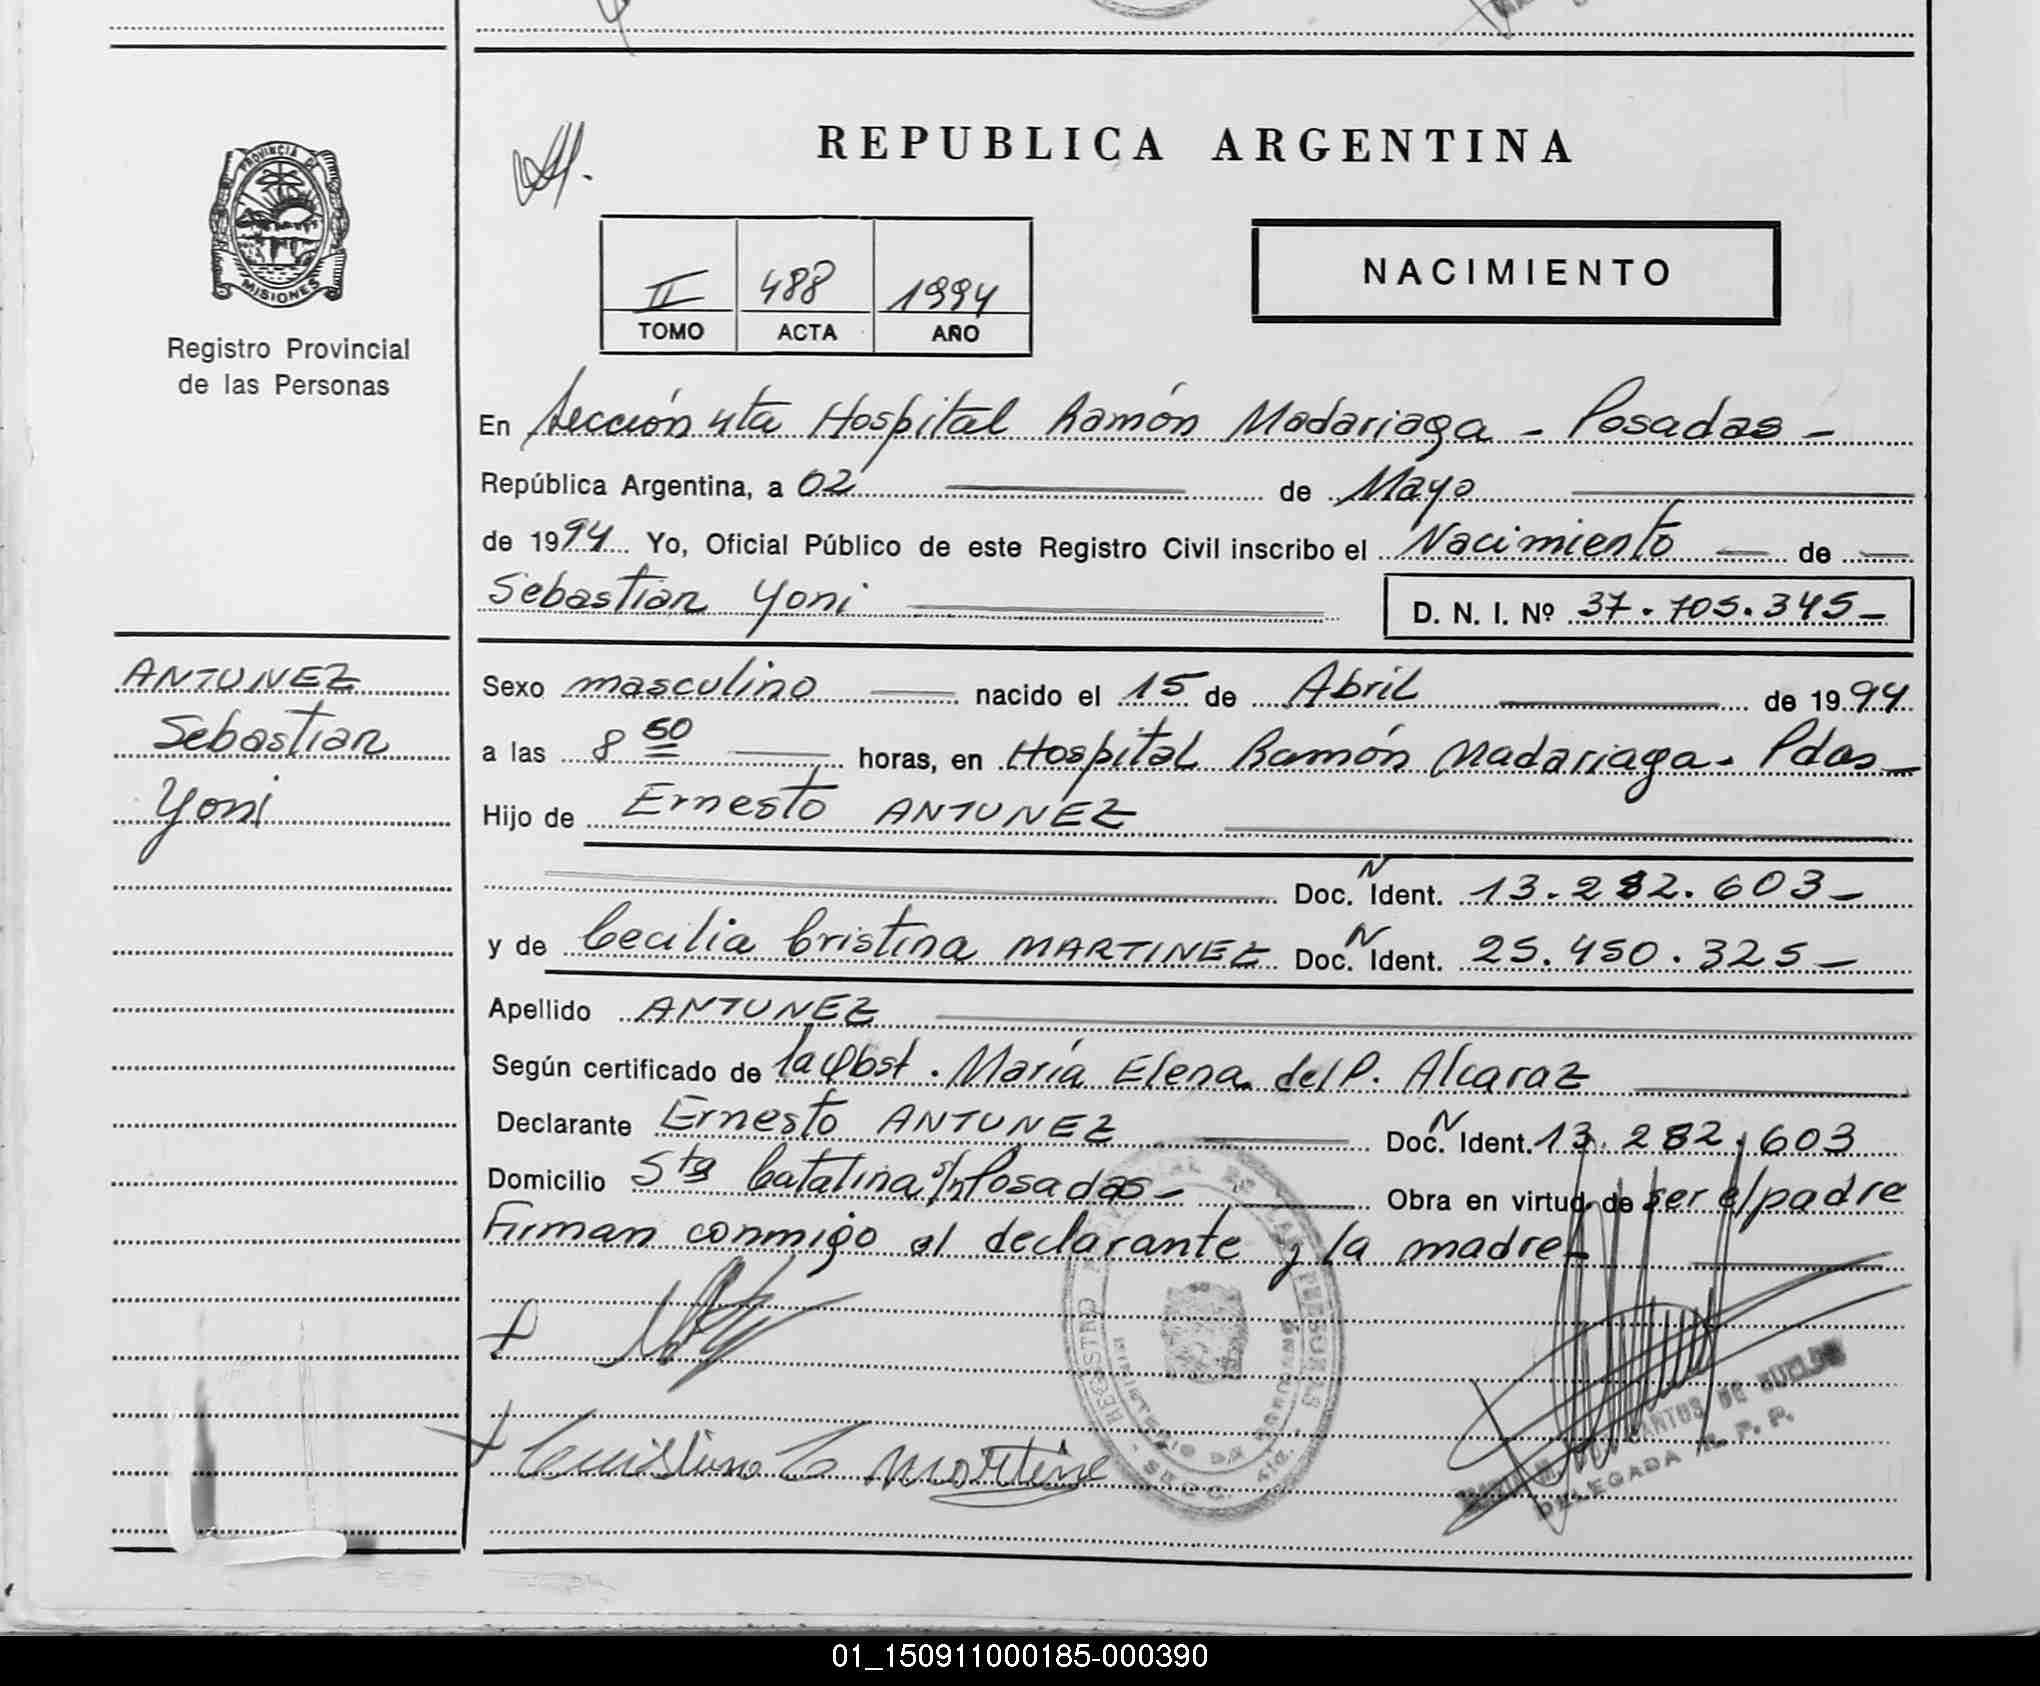 PROVINCIA DE
MISIONES
Registro Provincial
de las Personas
ANTUNEZ
Sebastian
Yoni
REPUBLICA ARGENTINA
NACIMIENTO
II 488 1994
TOMO ACTA AÑO
En Sección 4ta Hospital Ramón Madariaga - Posadas -
República Argentina, a 02 de Mayo
de 1994 Yo, Oficial Público de este Registro Civil inscribo el Nacimiento de
Sebastian Yoni D. N. I. Nº 37.705.345-
Sexo masculino nacido el 15 de Abril de 1994
a las 8 50 horas, en Hospital Ramón Madariaga - Pdas -
Hijo de Ernesto ANTUNEZ
Doc. N Ident. 13.282.603-
y de Cecilia Cristina MARTINEZ Doc. N Ident. 25.450.325-
Apellido ANTUNEZ
Según certificado de la Obst. María Elena del P. Alcaraz
Declarante Ernesto ANTUNEZ Doc. N Ident. 13.282.603
Domicilio Sta Catalina s/n Posadas - Obra en virtud de ser el padre
Firman conmigo el declarante y la madre -
REGISTRO PROVINCIAL DE LAS PERSONAS
SANTOS DE
DELEGADA R. P. P.
01_150911000185-000390